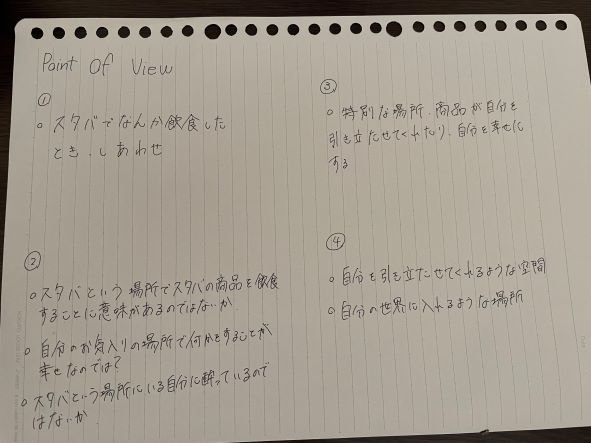 Point Of View
①
○ スタバでなんか飲食した
とき、しあわせ
②
○ スタバという場所でスタバの商品を飲食
することに意味があるのではないか
○ 自分のお気入りの場所で何かをすることが
幸せなのでは?
○ スタバという場所にいる自分に酔っているので
はないか
③
○ 特別な場所、商品が自分を
引き立たせてくれたり、自分を幸せに
する
④
○ 自分を引き立たせてくれるような空間
○ 自分の世界に入れるような場所